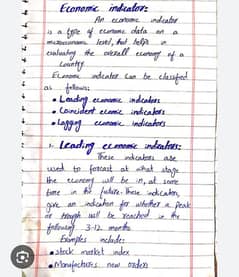 Economic indicators:
An economic indicator
is a type of economic data on a
macroeconomic level, that helps in
evaluating the overall economy of a
Country
Economic indicator can be classified
as follows:
• Leading economic indicators
• Coincident economic indicators
• Lagging economic indicators
1. Leading economic indicators:
These indicators are
used to forcast at what stage
the economy will be in, at some
time in the future. These indicators
give an indication for whether a peak
or trough will be reached in the
following 3-12 months
Examples includes:
• Stock market index
• Manufacturers new orders